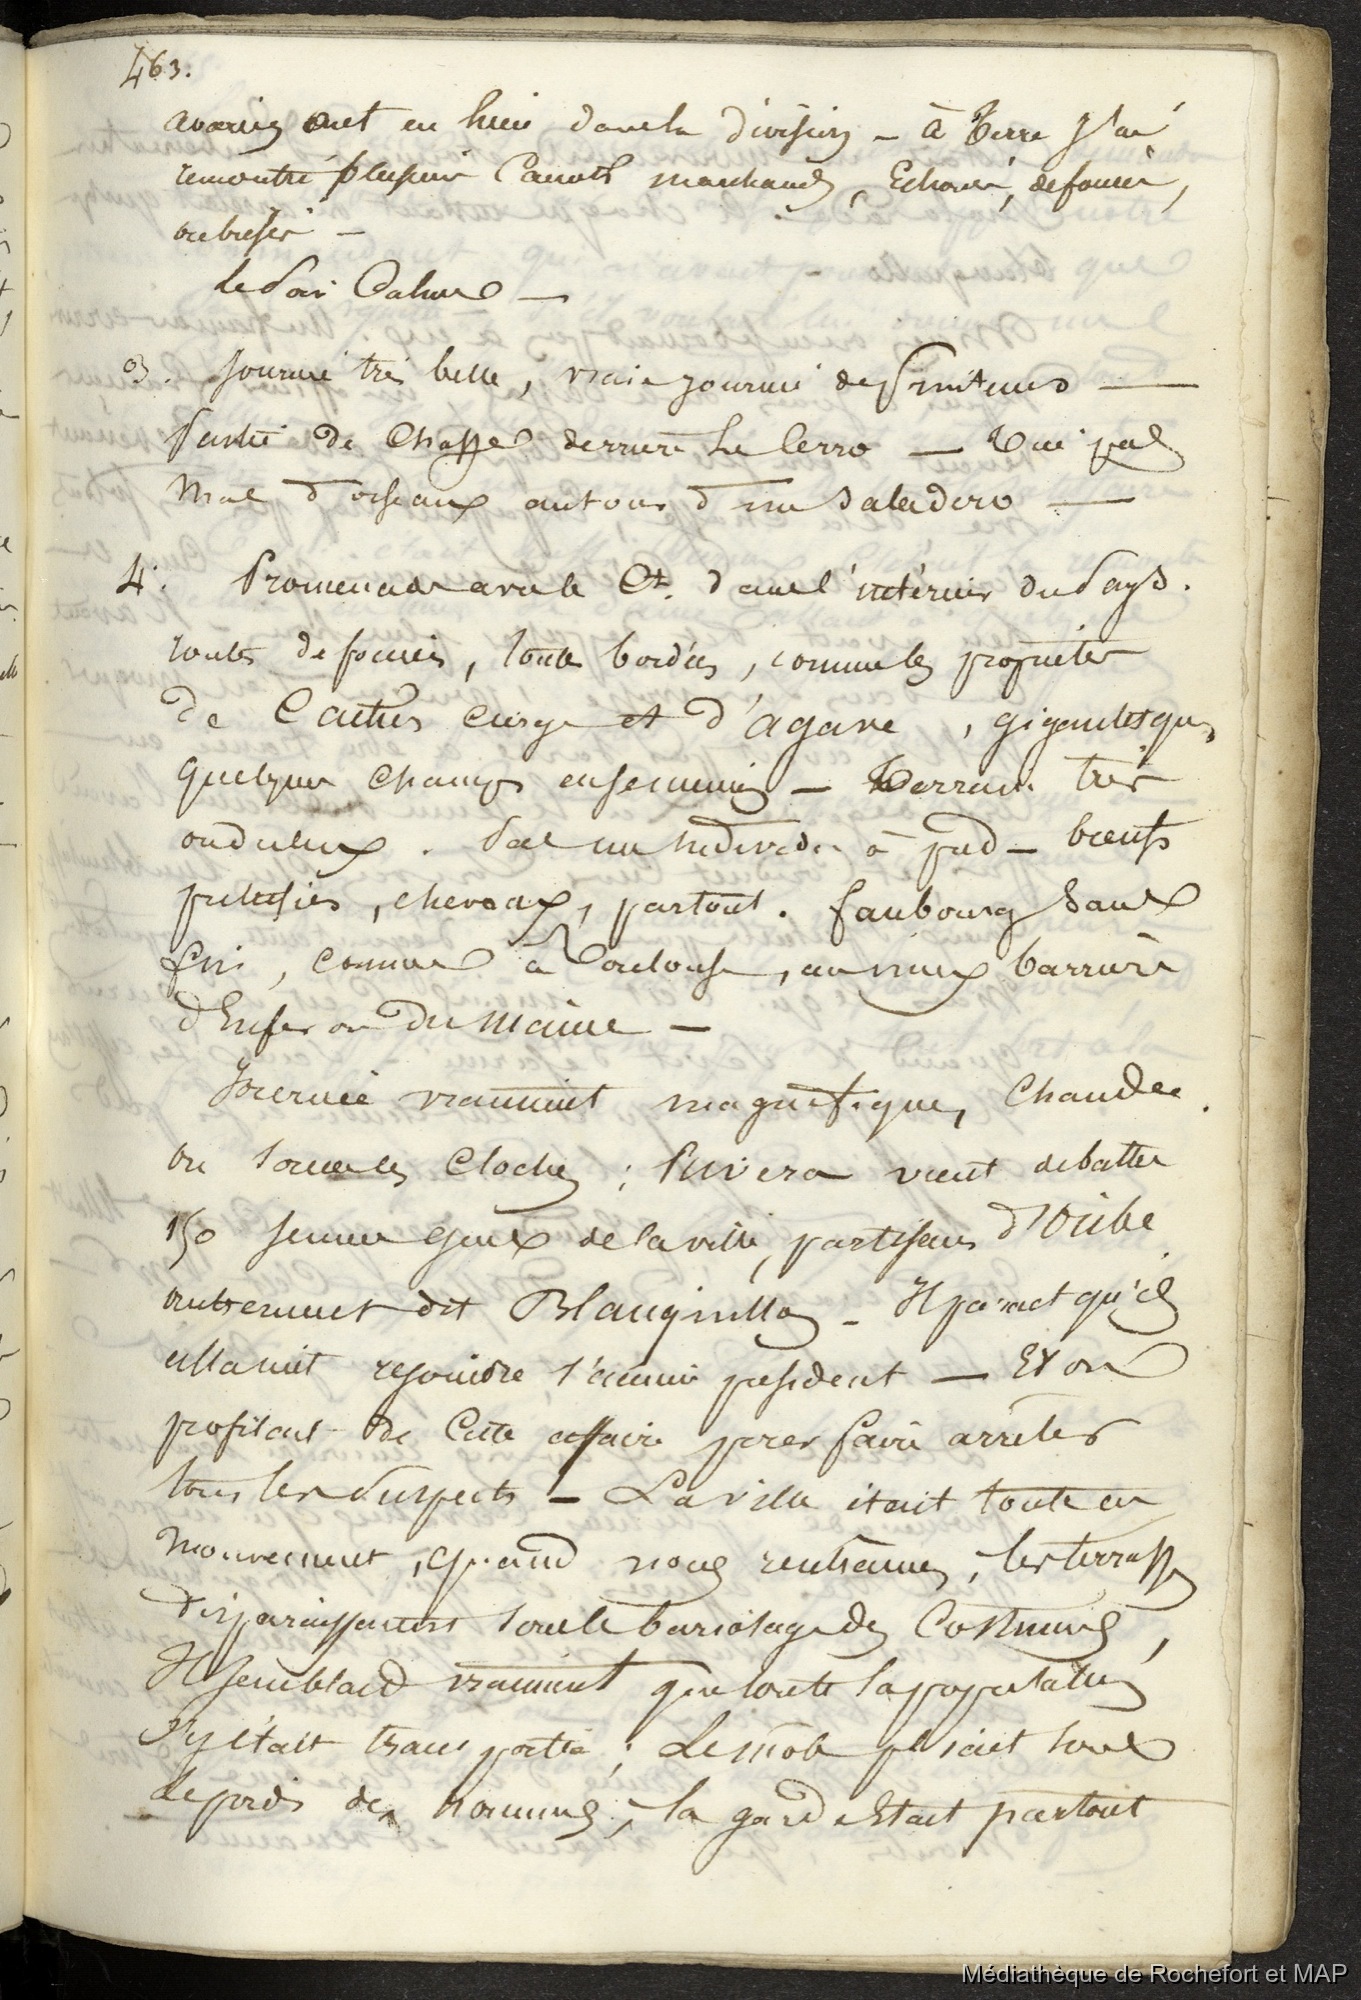 463.
avaries ont eu lieu dans la division - à Terre J'ai
rencontré plusieurs Canots marchands, Echoués, défoncés,
ou brisés -
Le Soir Calme -
3. Journée très belle, vraie journée de Printems -
Partie de Chasse derrière Le Cerro - Tué pas
Mal d'oiseaux autour d'un Saladero -
4. Promenade avec le Ct. dans l'intérieur du Pays.
routes défoncées, toutes bordées, comme les propriétés
De Cactus Cierge et d'agave, gigantesques
quelques Champs ensemencés - Terrain très
onduleux. Pas un individu à pied - bœufs
, chevaux, partout. faubourg Sans
fin, comme à Toulouse, au vieux barrière
d'Enfer ou Du Maine -
Journée vraiment magnifique, Chaude.
on sonne les Cloches; Rivera vient de battre
150 jeunes gens de la ville, partisans d'Oribe
autrement dit Blanquillos - Il paraît qu'ils
allaient rejoindre l'ancien président - Et on
profitait de Cette affaire pour faire arrêter
tous les Suspects - La ville était toute en
Mouvement, quand nous rentrâmes, les terrasses
disparaissaient sous le bariolage des Costumes,
Il semblait vraiment que toute la population
s'y était transportée; Le môle pliait sous
le poids des hommes, la garde Etait partout
Médiathèque de Rochefort et MAP